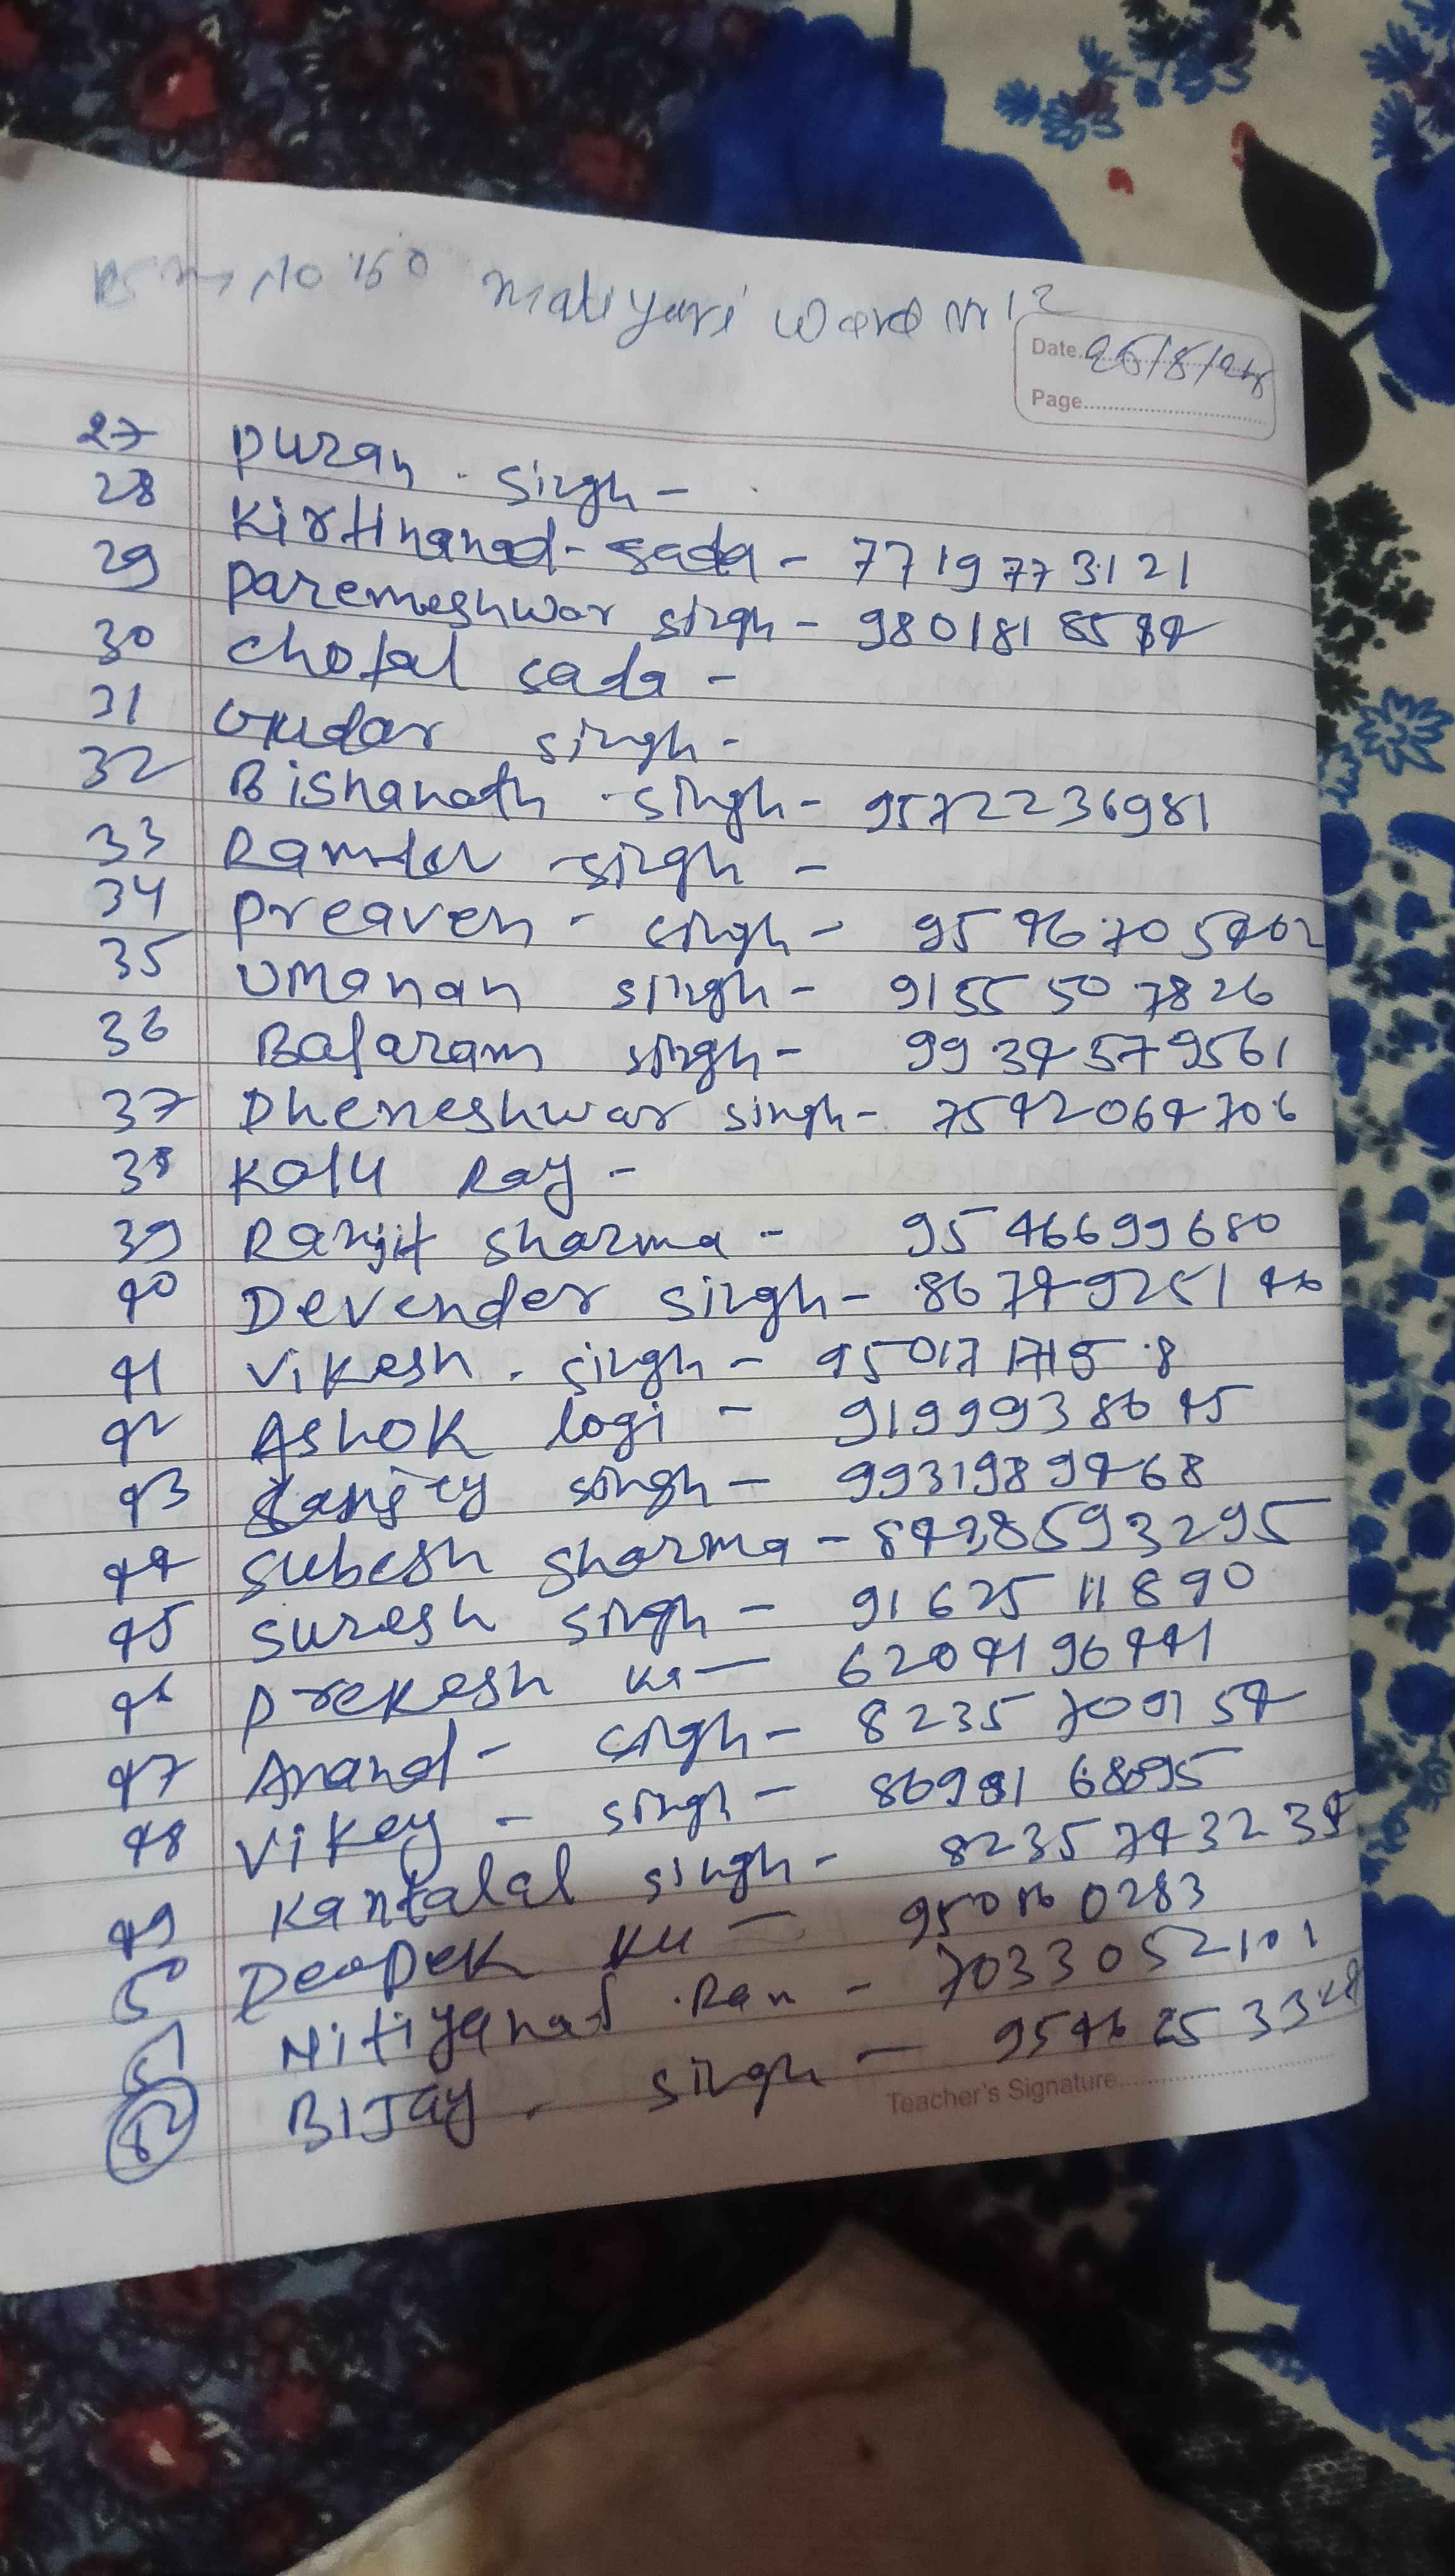 No 160 Matiyari Ward No 12
Date 26/8/24
Page
27 Puran . Singh -
28 Kirtinanad - Sada - 7719773121
29 Paremeshwar Singh - 98018185
30 Chopal Sada -
31 Gudar Singh -
32 Bishanath - Singh - 9572236981
33 Ramdev Singh -
34 Preaven - Singh - 9546705402
35 Umanan Singh - 9155507826
36 Balaram Singh - 9934579561
37 Dheneshwar Singh - 7542064706
38 Kalu Ray -
39 Ranjit Sharma - 9546699680
40 Devender Singh - 8674925146
41 Vikesh . Singh - 9501717158
42 Ashok logi - 9199938645
43 Sanjey Singh - 9931989468
44 Subesh Sharma - 8438593295
45 Suresh Singh - 9162511890
46 Prekesh Ku - 6204196441
47 Anand - Singh - 8235709154
48 Vikey - Singh - 8698168095
49 Kantalal Singh - 82357432
50 Deapek Ku -
51 Nitiyanad . Ram - 7033052101
52 Bijay . Singh - 9546253328
Teacher's Signature